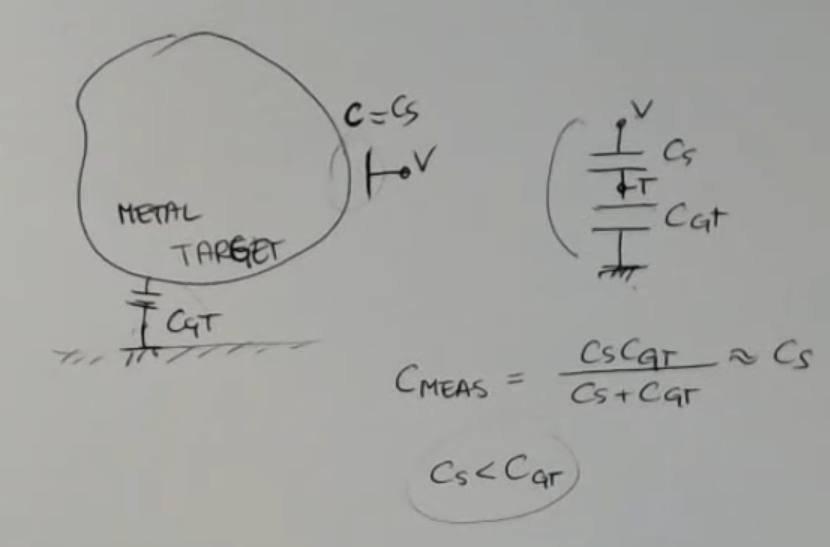 C=Cs
V
METAL
TARGET
CGT
V
Cs
T
CGT
CMEAS = CsCGT / Cs+CGT ≈ Cs
Cs<CGT